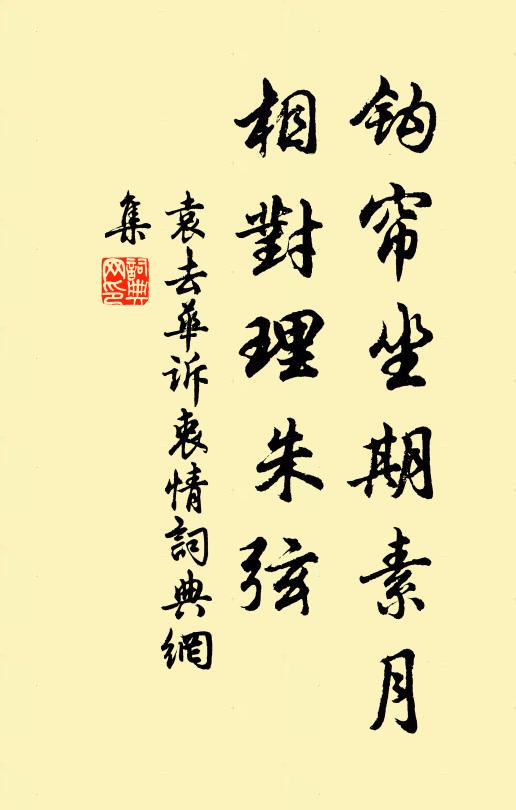 钩帘坐期素月
相對理朱弦
袁去華訴衷情詞典網
集
詞典
网印